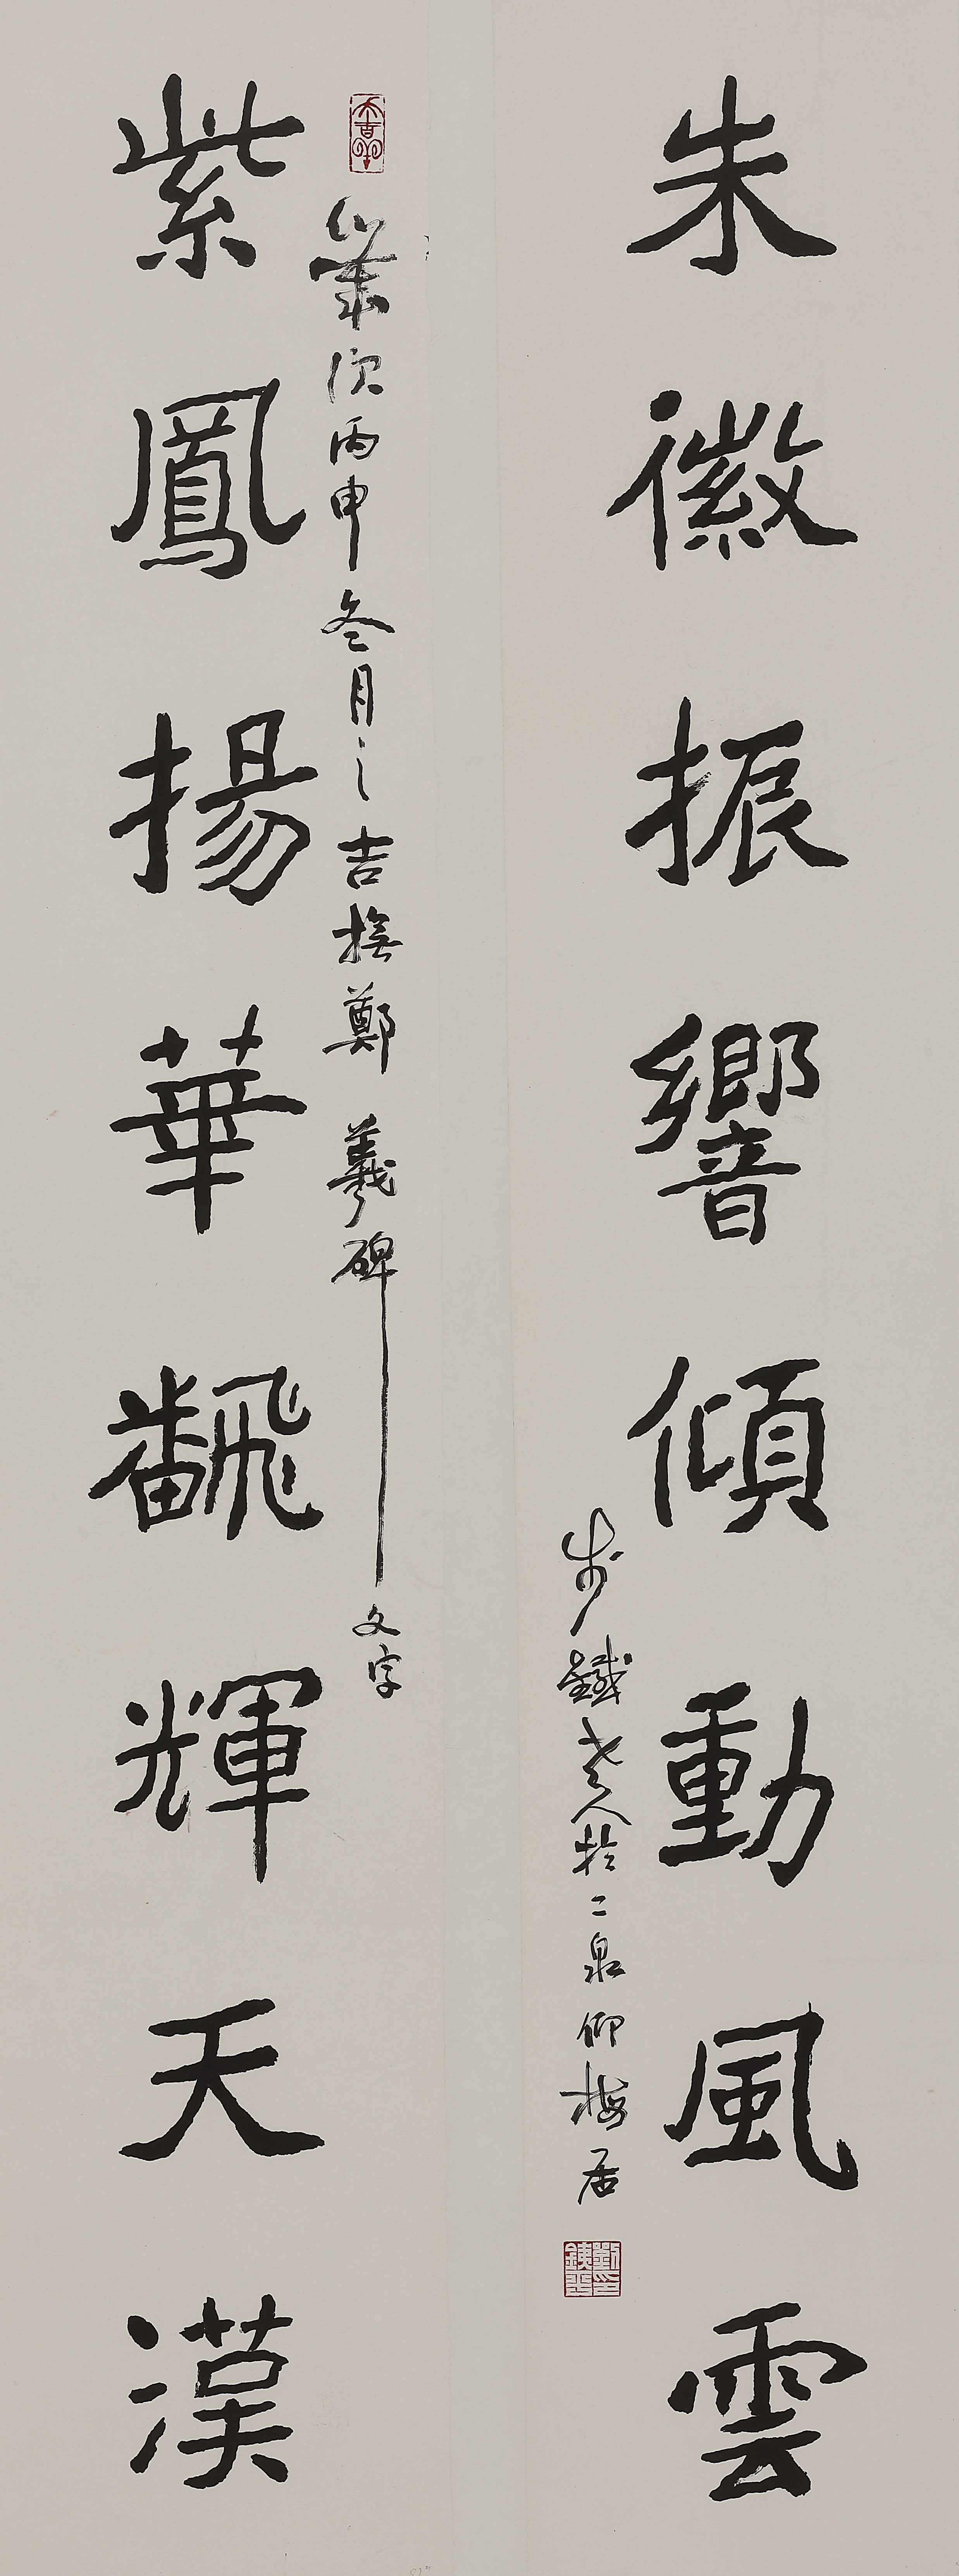 朱徽振響傾動風雲
步鐵老人於二泉仰梅居
歲次丙申冬月之吉撫鄭羲碑文字
紫鳳揚華飜輝天漢